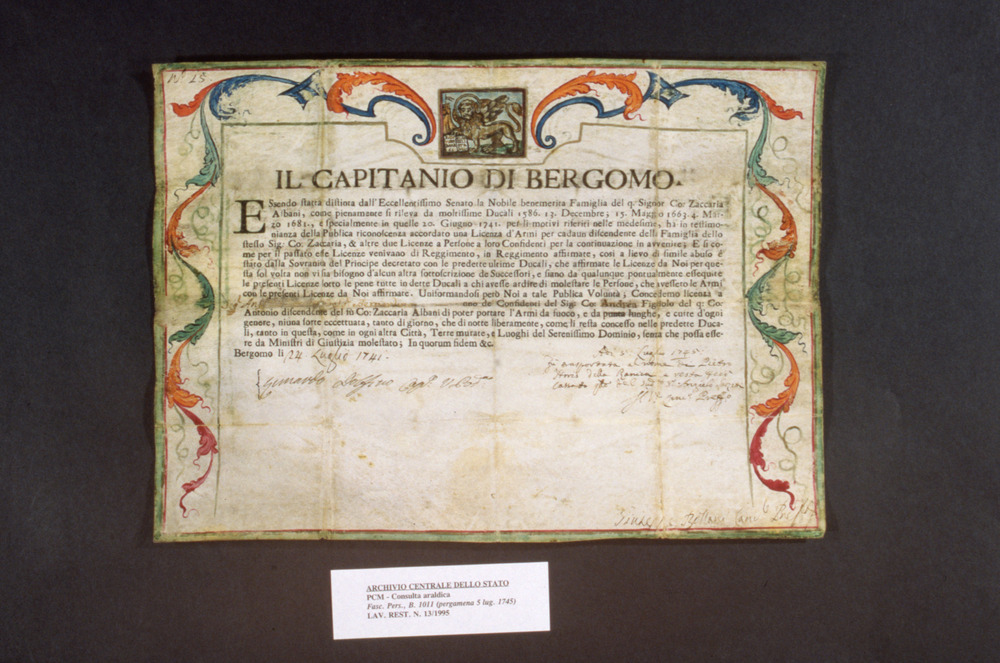 N.° 25.
IL CAPITANIO DI BERGOMO.
Essendo stata distinta dall' Eccellentissimo Senato la Nobile benemerita Famiglia del q. Signor Co: Zaccaria
Albani, come pienamente si rileva da moltissime Ducali 1586. 13. Decembre; 15. Maggio 1663. 4. Mar-
zo 1681., e specialmente in quelle 20. Giugno 1741. per li motivi riferiti nelle medesime, hà in testimo-
nianza della Publica riconoscenza accordato una Licenza d'Armi per cadaun discendente della Famiglia dello
stesso Sig: Co: Zaccaria, & altre due Licenze a Persone a loro Confidenti per la continuazione in avvenire; E sì co-
me per il passato esse Licenze venivano di Reggimento, in Reggimento affirmate, così a lievo di simile abuso è
stato dalla Sovranità del Principe decretato con le predette ultime Ducali, che affirmate le Licenze da Noi per que-
sta sol volta non vi sia bisogno d'alcun altra sottoscrizione de Successori, e siano da qualunque pontualmente essequite
le presenti Licenze sotto le pene tutte in dette Ducali a chi avesse ardire di molestare le Persone, che avessero le Armi
con le presenti Licenze da Noi affirmate. Uniformandosi però Noi a tale Publica Volontà; Concedemo licenza a
uno de Confidenti del Sig: Co: Figliolo del q: Co:
Antonio discendente del sù Co: Zaccaria Albani di poter portare l'Armi da fuoco, e da punta lunghe, e curte d'ogni
genere, niuna sorte eccettuata, tanto di giorno, che di notte liberamente, come li resta concesso nelle predette Duca-
li, tanto in questa, come in ogni altra Città, Terre murate, e Luoghi del Serenissimo Dominio, senza che possa esse-
re da Ministri di Giustizia molestato; In quorum fidem &c.
Bergomo li 24 Luglio 1741.
Adi 5 Luglio 1745.
ARCHIVIO CENTRALE DELLO STATO
PCM - Consulta araldica
Fasc. Pers., B. 1011 (pergamena 5 lug. 1745)
LAV. REST. N. 13/1995